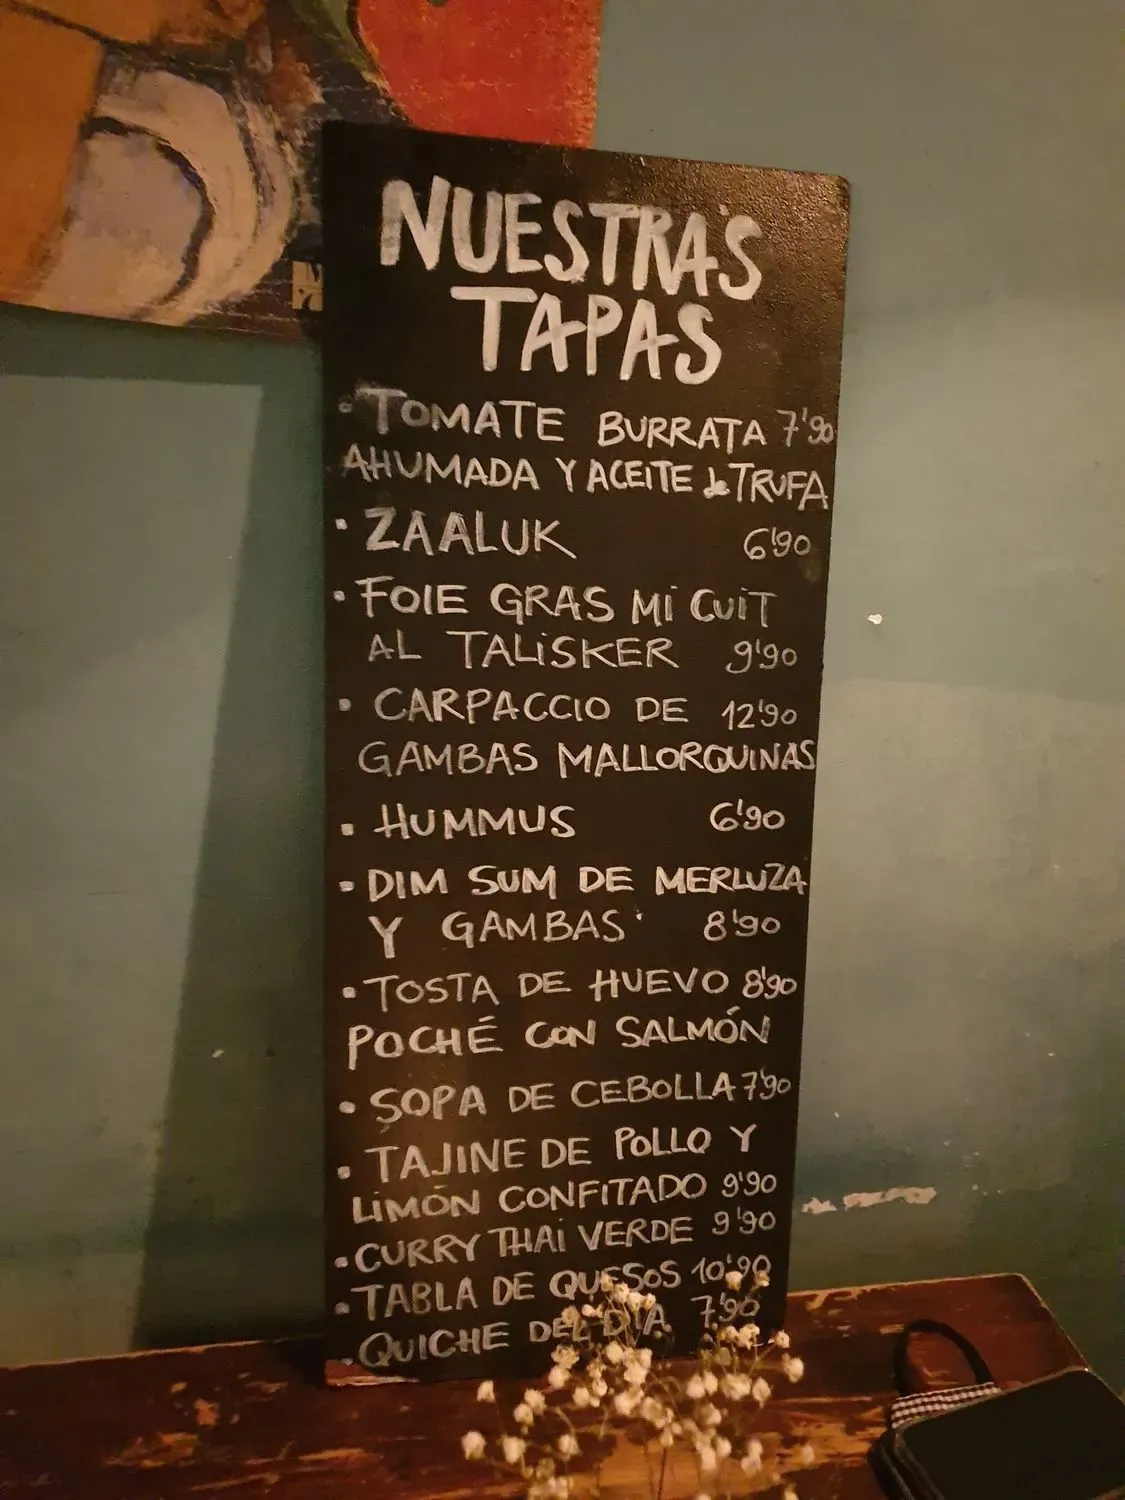 NUESTRAS
TAPAS
• TOMATE BURRATA 7'90
AHUMADA Y ACEITE de TRUFA
• ZAALUK 6'90
• FOIE GRAS Mi CUiT
AL TALiSKER 9'90
• CARPACCIO DE 12'90
GAMBAS MALLORQUINAS
• HUMMUS 6'90
• DIM SUM DE MERLUZA
Y GAMBAS 8'90
• TOSTA DE HUEVO 8'90
POCHÉ CON SALMÓN
• SOPA DE CEBOLLA 7'90
• TAJINE DE POLLO Y
LIMÓN CONFITADO 9'90
• CURRY THAi VERDE 9'90
• TABLA DE QUESOS 10'90
• QUICHE DEL DIA 7'90